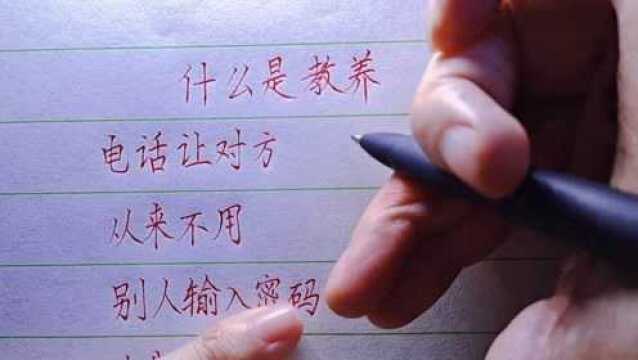 什么是教养
电话让对方
从来不用
别人输入密码